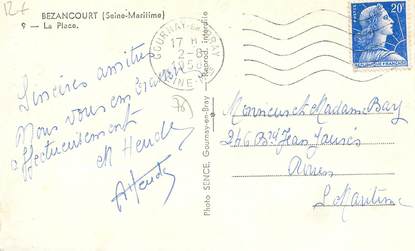 BEZANCOURT (Seine-Maritime)
9 - La Place.
GOURNAY-EN-BRAY
17 H
2-8
1958
SEINE
20F
POSTES
REPUBLIQUE FRANÇAISE
Reprod. interdite
Photo SENCE, Gournay-en-Bray
Sincères amitiés
Nous vous embrassons
affectueusement
M
Monsieur et Madame Bay
246 Bd Jean Jaurès
Rouen
S. Maritime